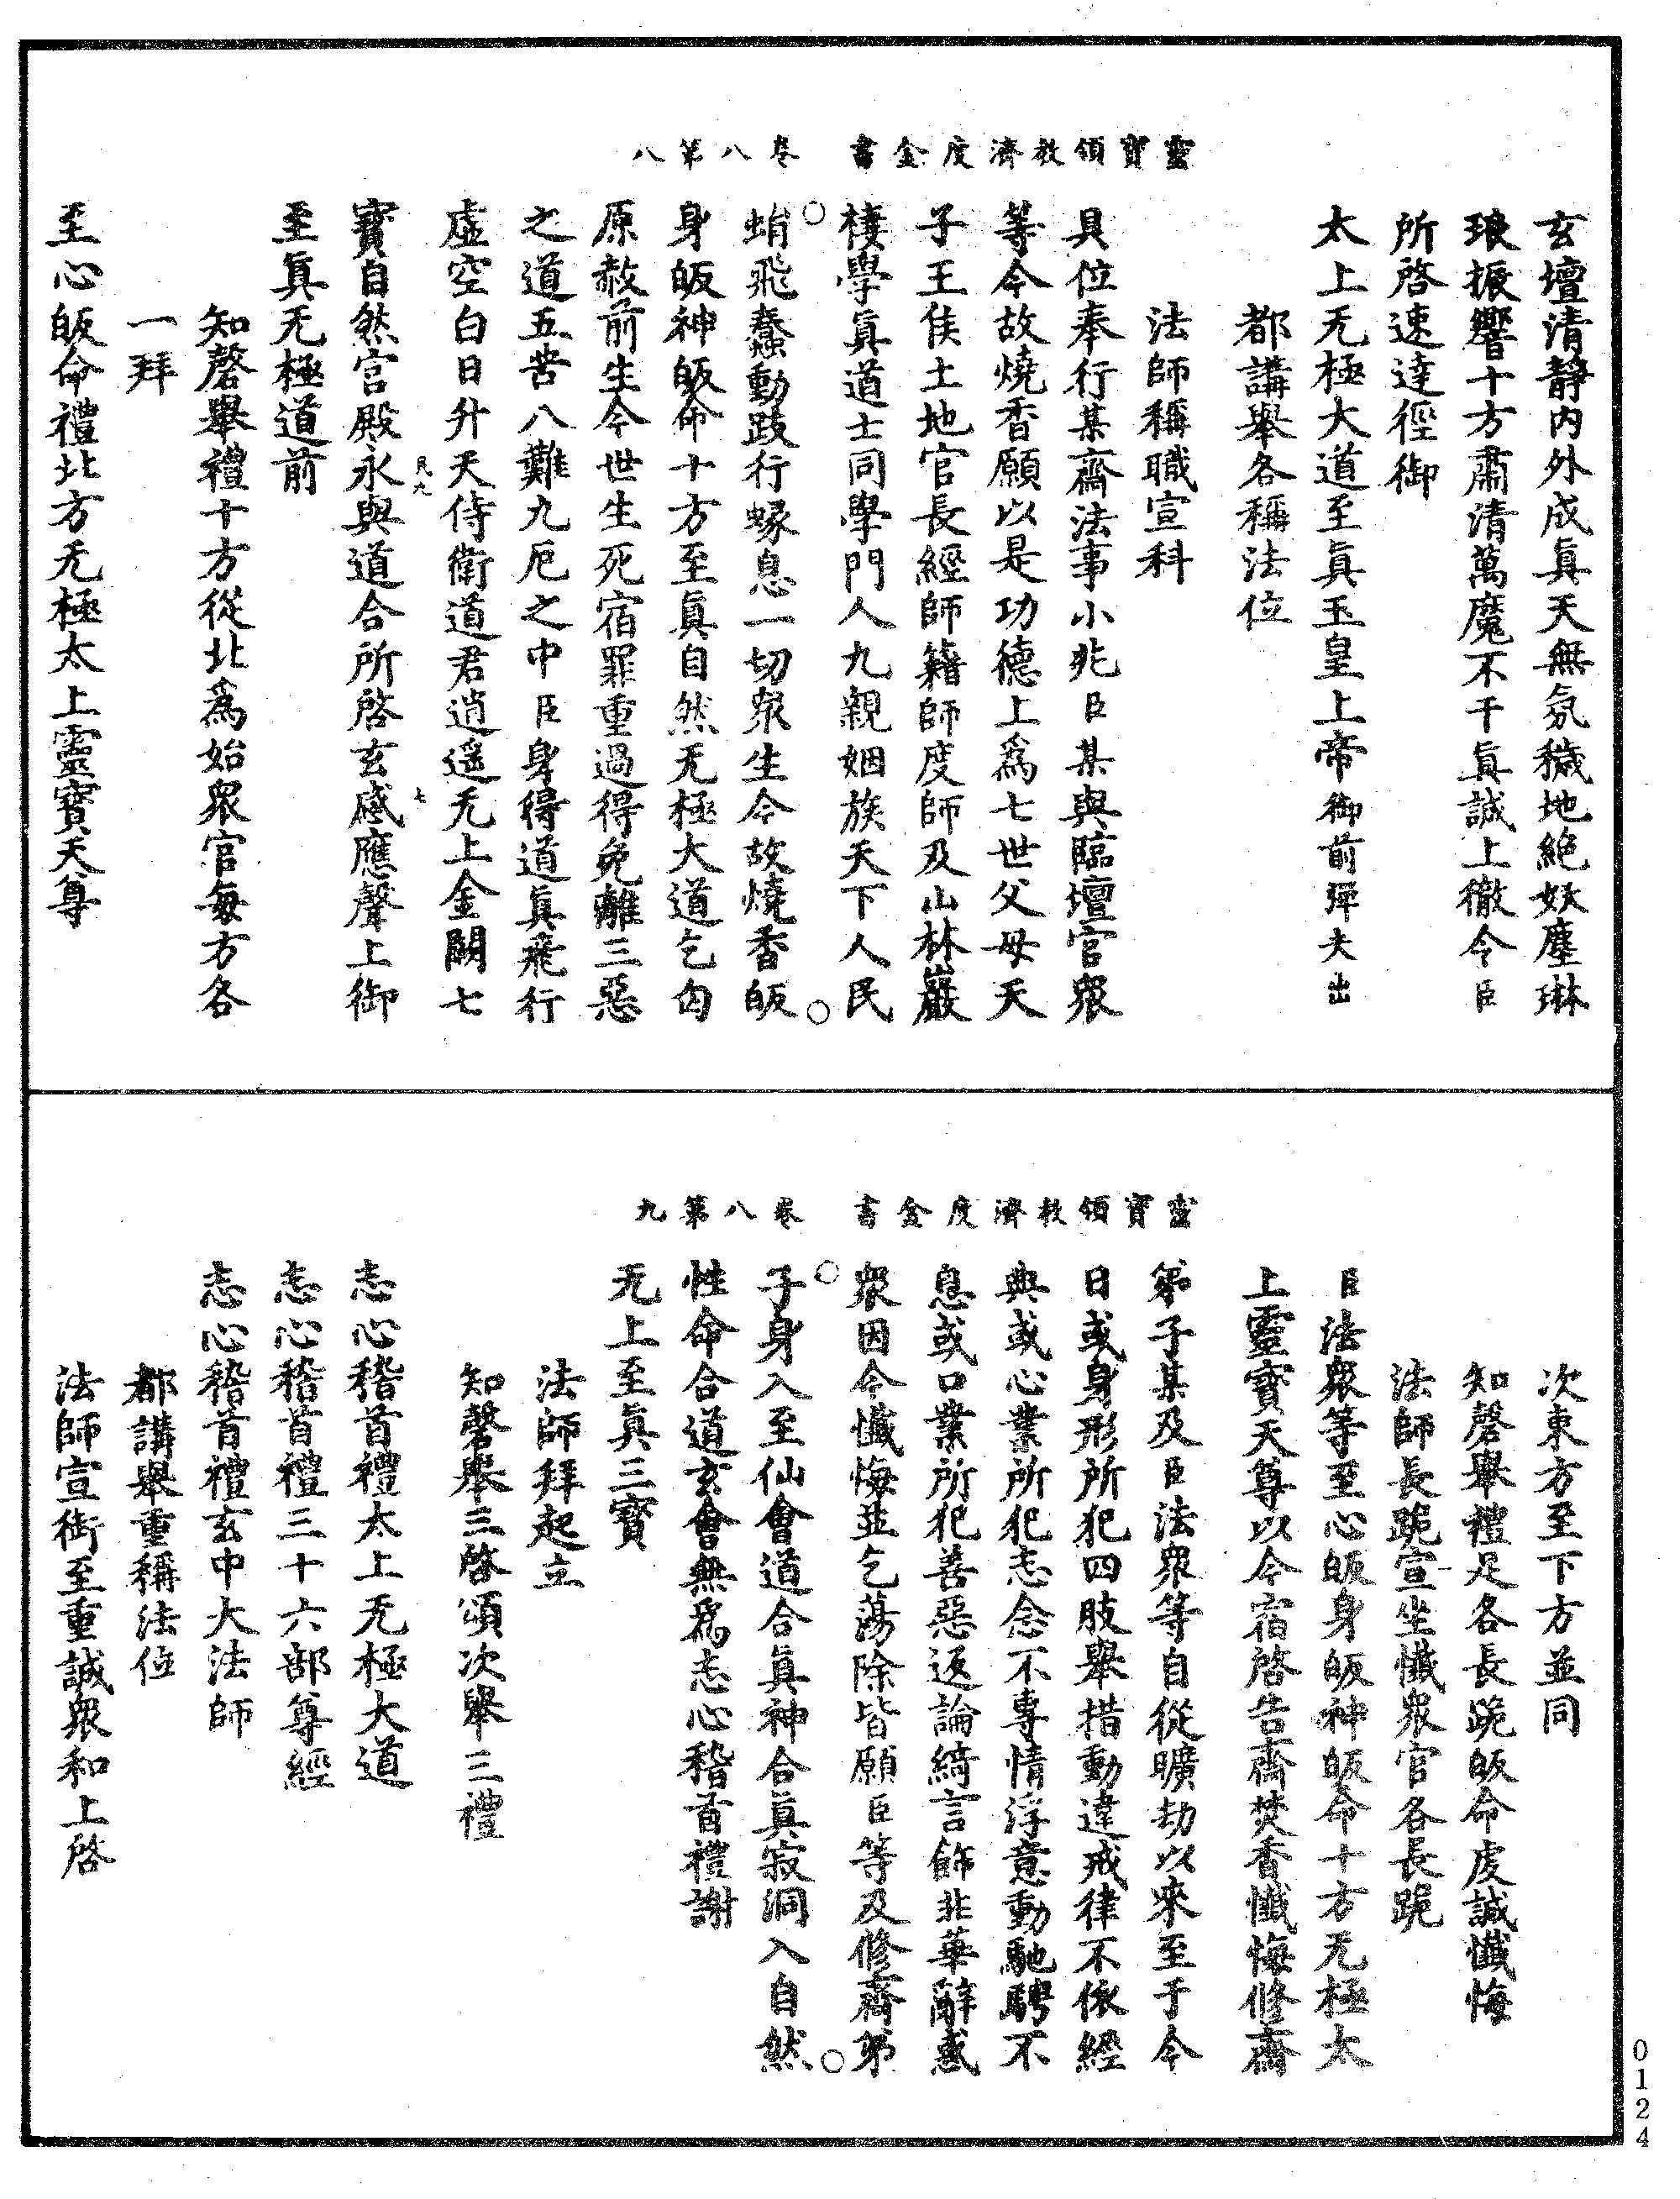 靈寶領教濟度金書　卷八第八
玄壇清靜內外成眞天無氛穢地絶妖塵琳
琅振響十方肅清萬魔不干眞誠上徹令臣
所啓速達徑御
太上无極大道至眞玉皇上帝御前彈夫出
都講舉各稱法位
法師稱職宣科
具位奉行某齋法事小兆臣某與臨壇官衆
等今故燒香願以是功德上爲七世父母天
子王侯土地官長經師籍師度師及山林巖
棲學眞道士同學門人九親姻族天下人民
蛸飛蠢動跂行蜾息一切衆生今故燒香皈
身皈神皈命十方至眞自然无極大道乞匃
原赦前生今世生死宿罪重過得免離三惡
之道五苦八難九厄之中臣身得道眞飛行
虛空白日升天侍衛道君逍遥无上金闕七
寶自然宮殿永與道合所啓玄感應聲上御
民九
七
至眞无極道前
知磬舉禮十方從北爲始衆官每方各
一拜
至心皈命禮北方无極太上靈寶天尊
靈寶領教濟度金書　卷八第九
次東方至下方並同
知磬舉禮足各長跪皈命虔誠懺悔
法師長跪宣坐懺衆官各長跪
臣法衆等至心皈身皈神皈命十方无極太
上靈寶天尊以今宿啓告齋焚香懺悔修齋
弟子某及臣法衆等自從曠劫以來至于今
日或身形所犯四肢舉措動違戒律不依經
典或心業所犯志念不專情浮意動馳騁不
息或口業所犯善惡返論綺言飾非華辭惑
衆因今懺悔並乞蕩除皆願臣等及修齋弟
子身入至仙會道合眞神合眞寂洞入自然
性命合道玄會會無爲志心稽首禮謝
无上至眞三寶
法師拜起立
知磬舉三啓頌次舉三禮
志心稽首禮太上无極大道
志心稽首禮三十六部尊經
志心稽首禮玄中大法師
都講舉重稱法位
法師宣銜至重誠衆和上啓
0124